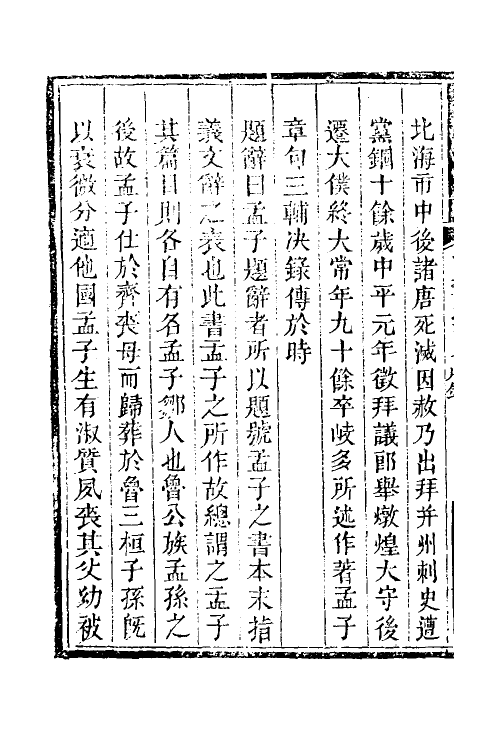 北海市中後諸唐死滅因赦乃出拜并州刺史遭
黨錮十餘歲中平元年徵拜議郎舉燉煌大守後
遷大僕終大常年九十餘卒岐多所述作著孟子
章句三輔决錄傳於時
題辭曰孟子題辭者所以題號孟子之書本末指
義文辭之表也此書孟子之所作故總謂之孟子
其篇目則各自有名孟子鄒人也魯公族孟孫之
後故孟子仕於齊喪母而歸葬於魯三桓子孫旣
以衰微分適他國孟子生有淑質夙喪其父幼被